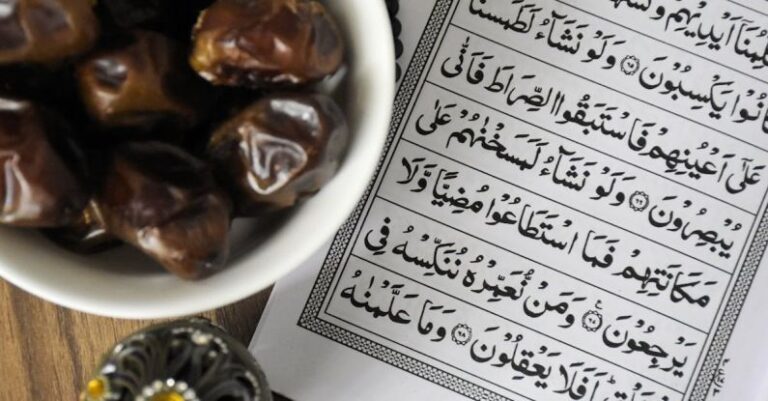 اَيْدِيْهِمْ
كَانُوْا يَكْسِبُوْنَ ۝٦٥ وَلَوْ نَشَآءُ لَطَمَسْنَا
عَلٰٓى اَعْيُنِهِمْ فَاسْتَبَقُوا الصِّرَاطَ فَاَنّٰى
يُبْصِرُوْنَ ۝٦٦ وَلَوْ نَشَآءُ لَمَسَخْنٰهُمْ عَلٰى
مَكَانَتِهِمْ فَمَا اسْتَطَاعُوْا مُضِيًّا وَّلَا
يَرْجِعُوْنَ ۝٦٧ وَمَنْ نُّعَمِّرْهُ نُنَكِّسْهُ فِى
اَفَلَا يَعْقِلُوْنَ ۝٦٨ وَمَا عَلَّمْنٰهُ